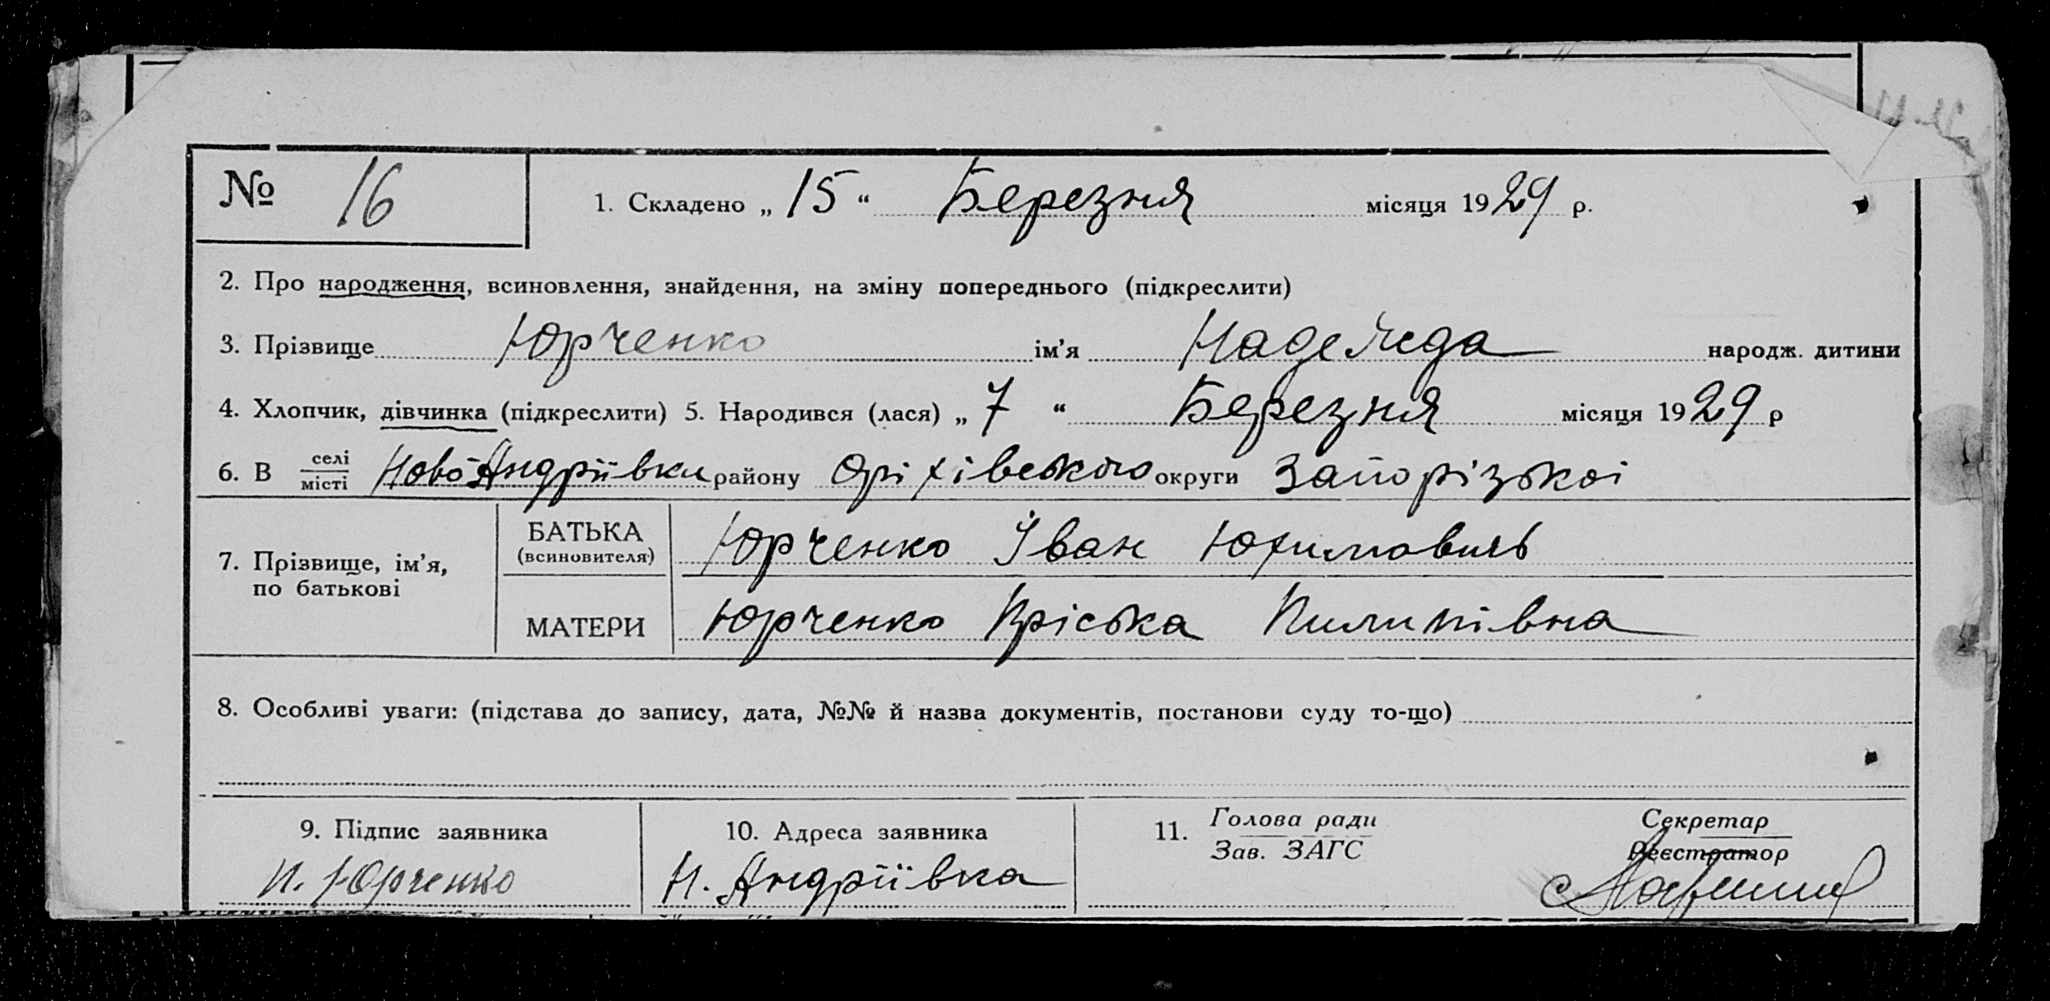 № 16 1. Складено „ 15 “ Березня місяця 1929 р.
2. Про народження, всиновлення, знайдення, на зміну попереднього (підкреслити)
3. Прізвище Юрченко ім’я Надежда народж. дитини
4. Хлопчик, дівчинка (підкреслити) 5. Народився (лася) „ 7 “ Березня місяця 1929 р
6. В селі
місті Ново Андріївки району Оріхівського округи Запорізької
7. Прізвище, ім’я,
по батькові
БАТЬКА
(всиновителя)
Юрченко Іван Юхимовичь
МАТЕРИ Юрченко Пріська Пилипівна
8. Особливі уваги: (підстава до запису, дата, №№ й назва документів, постанови суду то-що)
9. Підпис заявника 10. Адреса заявника 11. Голова ради
Зав. ЗАГС
Секретар
Реєстратор
Юрченко Н. Андріївка